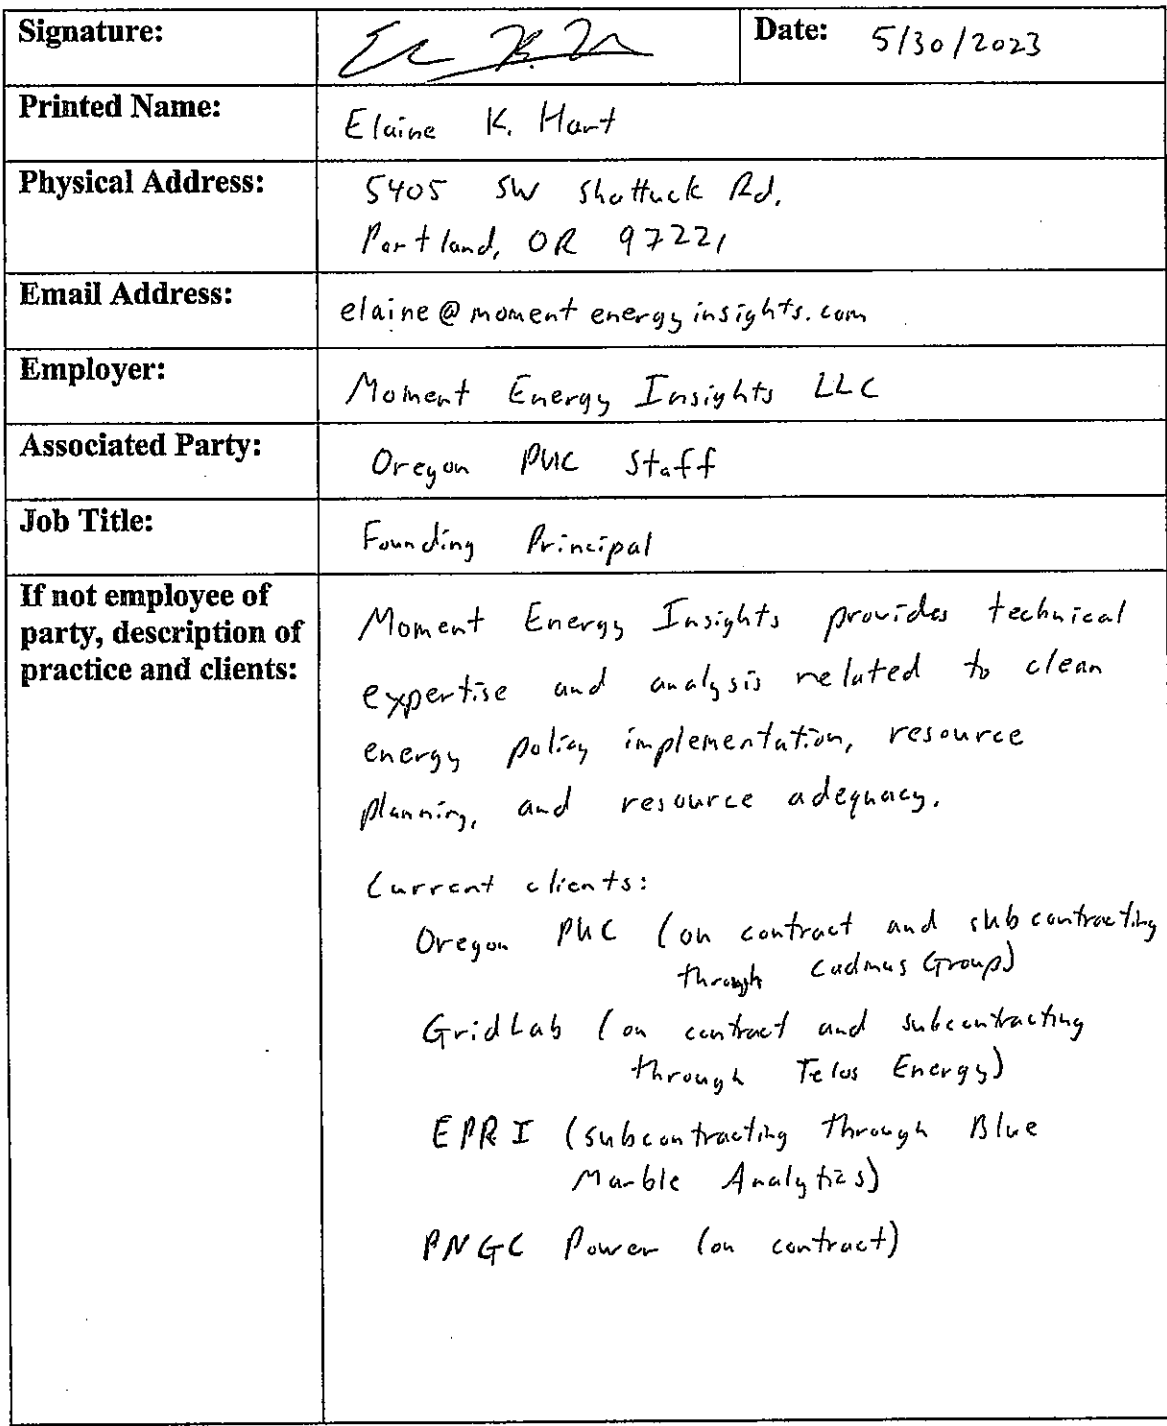 Signature:
Date: 5/30/2023
Printed Name: Elaine K. Hart
Physical Address: 5405 SW Shattuck Rd.
Portland, OR 97221
Email Address: elaine@momentenergyinsights.com
Employer: Moment Energy Insights LLC
Associated Party: Oregon PUC Staff
Job Title: Founding Principal
If not employee of
party, description of
practice and clients:
Moment Energy Insights provides technical
expertise and analysis related to clean
energy policy implementation, resource
planning, and resource adequacy.
Current clients:
Oregon PUC (on contract and subcontracting
through Cadmus Group)
GridLab (on contract and subcontracting
through Telos Energy)
EPRI (subcontracting through Blue
Marble Analytics)
PNGC Power (on contract)